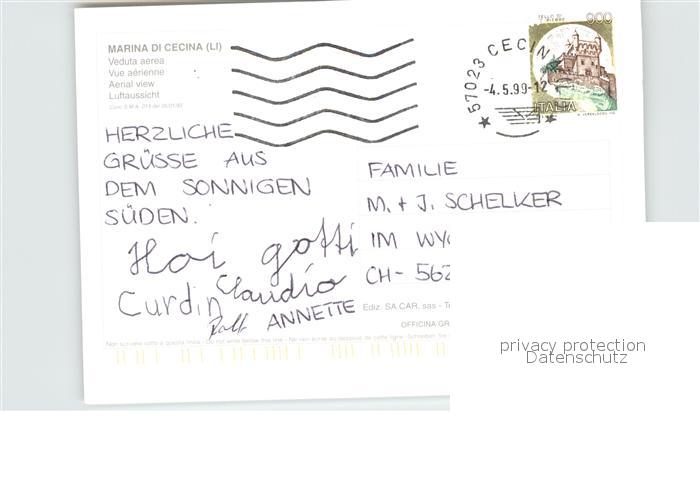 MARINA DI CECINA (LI)
Veduta aerea
Vue aérienne
Aerial view
Luftaussicht
57023 CECIN
-4.5.99-12
800
ITALIA
HERZLICHE
GRÜSSE AUS
DEM SONNIGEN
SÜDEN.
Hoi gotti
Curdin Claudio
Ralf ANNETTE
FAMILIE
M. + J. SCHELKER
IM WY
CH- 562
Ediz. SA.CAR. sas - T
OFFICINA GR
Non scrivere sotto a questa linea - Do not write below this line - Ne rien écrire au-dessous de cette ligne - Schreiben Sie
privacy protection
Datenschutz